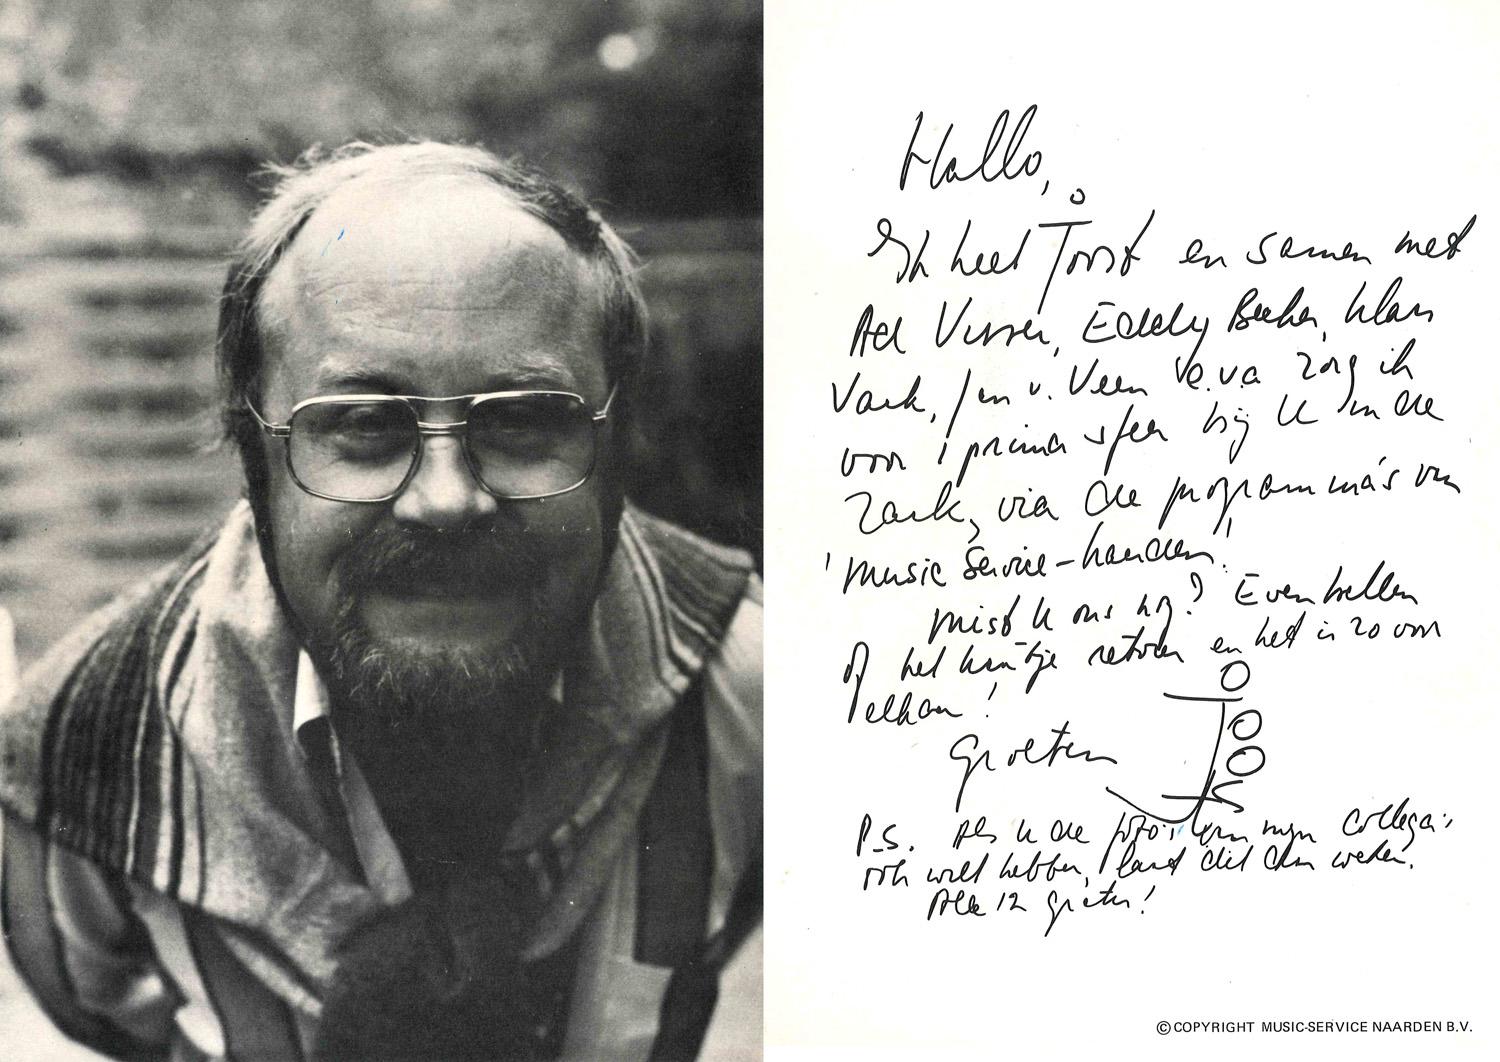 Hallo,
Ik heet Joost en samen met
Ad Visser, Eddy Becker, Klaas
Vaak, Jan v. Veen e.v.a zorg ik
voor 'n prima sfeer bij U in de
Zaak, via de programma's van
'Music Service-Naarden'.
Mist U ons nog? Even bellen
of het kaartje retour en het is zo voor
elkaar!
Groeten
JOOST
P.S. Als U de foto's van mijn collega's
ook wilt hebben, laat dit dan weten.
Alle 12 gratis!
© COPYRIGHT MUSIC-SERVICE NAARDEN B.V.